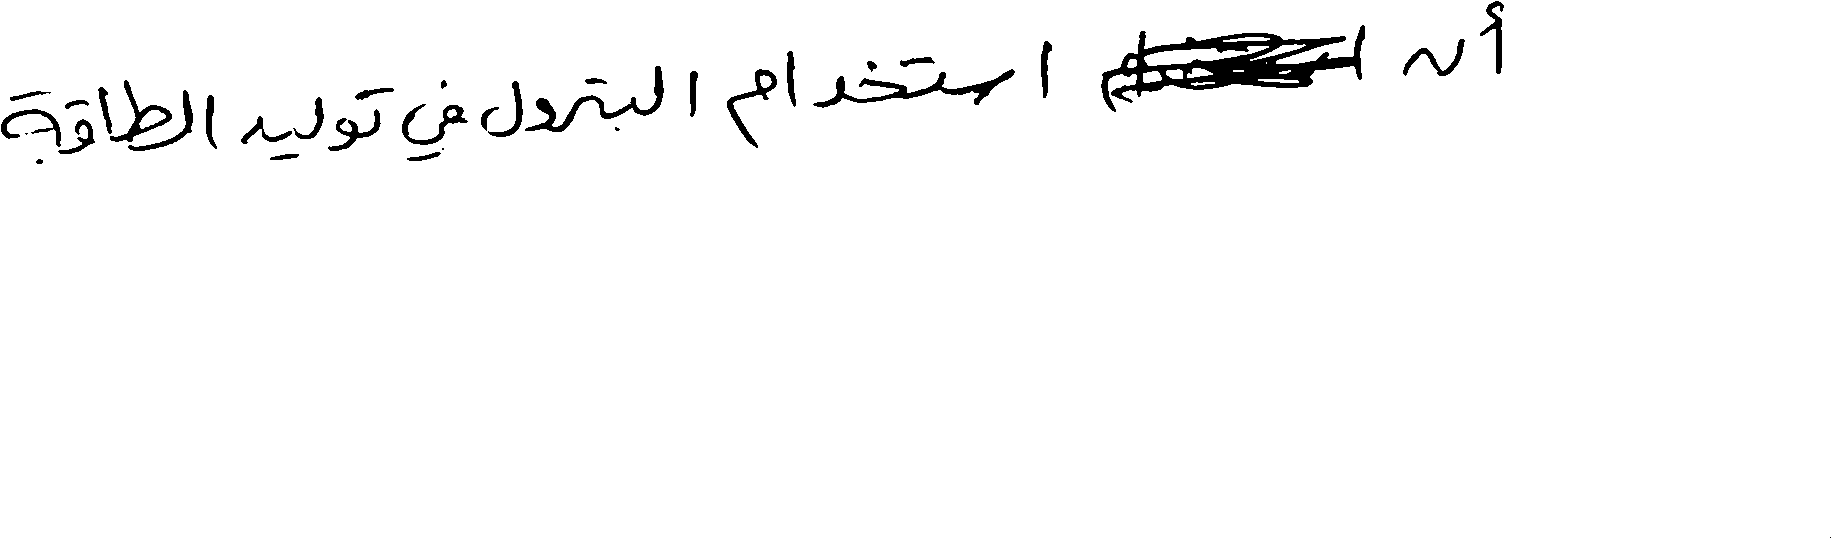 أن استخدام البترول في توليد الطاقة